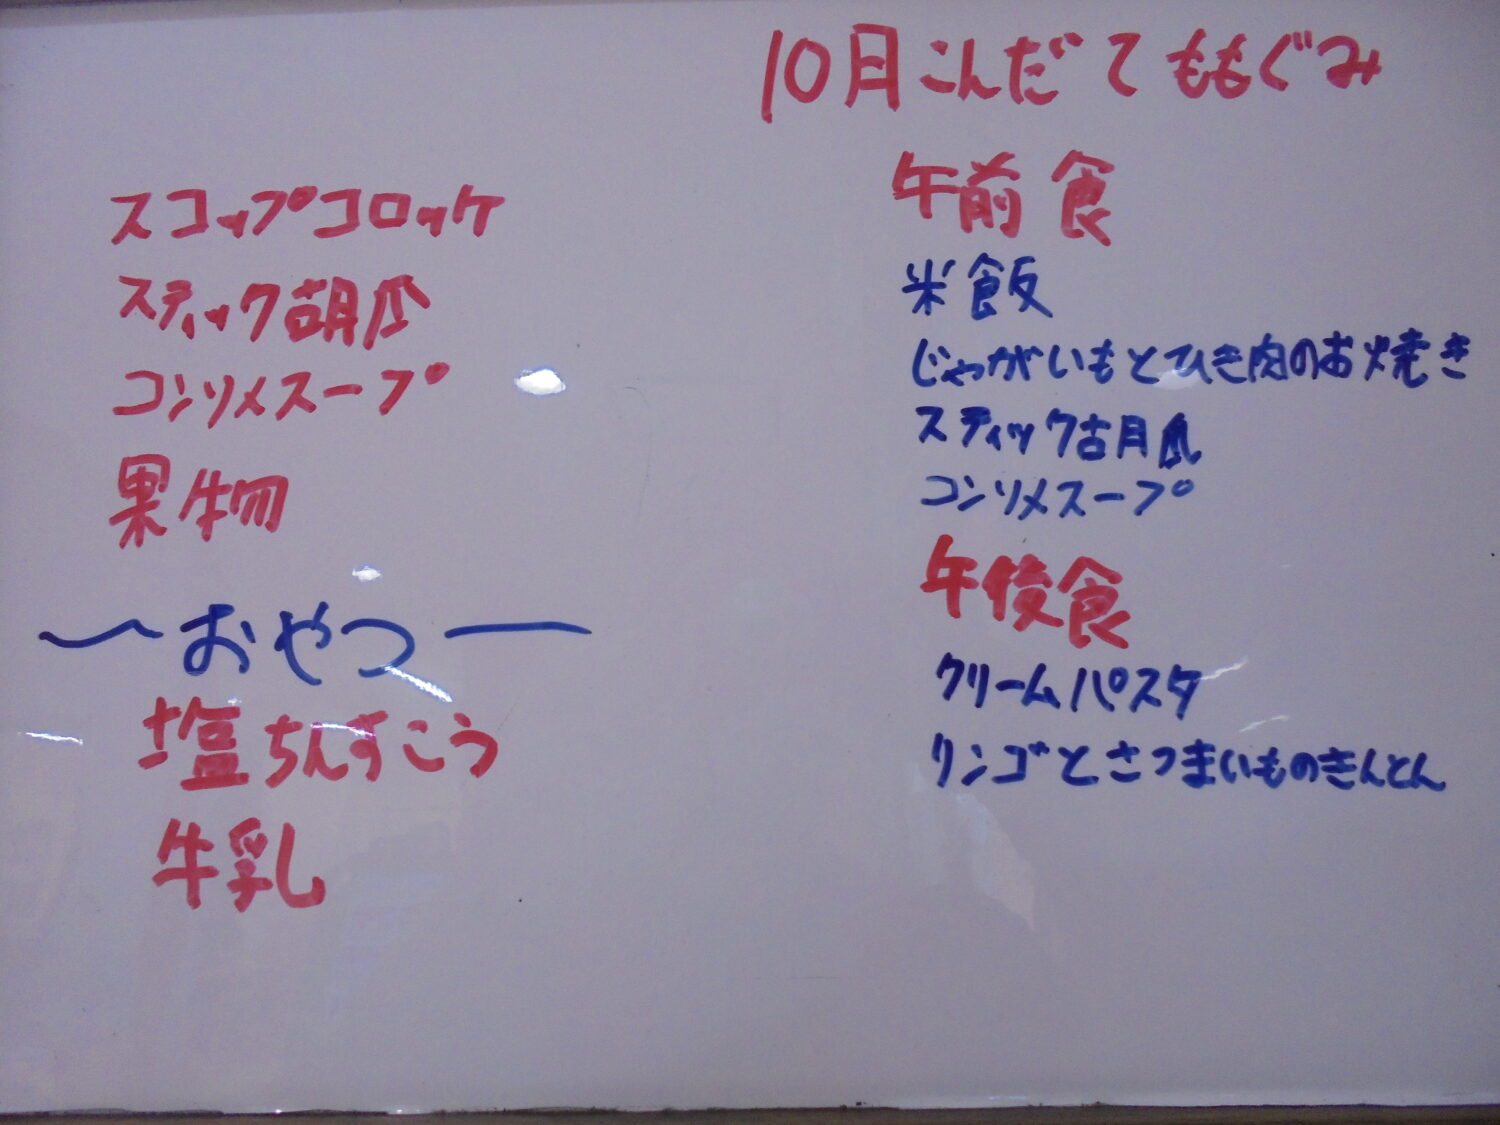 スコップコロッケ
スティック胡瓜
コンソメスープ
果物
〜おやつー
塩ちんすこう
牛乳
10月こんだて ももぐみ
午前食
米飯
じゃがいもとひき肉のお焼き
スティック胡瓜
コンソメスープ
午後食
クリームパスタ
リンゴとさつまいものきんとん